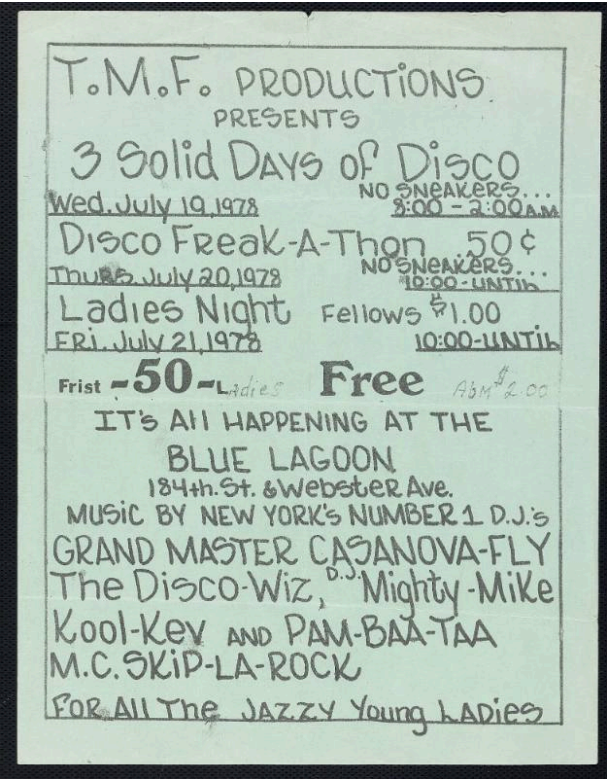 T.M.F. PRODUCTiONS
PRESENTS
3 Solid DAYS of Disco
NO SNEAKERS...
Wed. July 19, 1978 8:00 - 2:00 A.M
Disco FREAK-A-Thon 50¢
NO SNEAKERS...
Thurs. July 20, 1978 10:00 - UNTil
Ladies Night Fellows $1.00
FRi. July 21, 1978 10:00 - UNTil
Frist -50- Ladies Free Abm $2.00
IT's All HAPPENING AT THE
BLUE LAGOON
184th. St. & Webster Ave.
MUSiC BY NEW YORK's NUMBER 1 D.J.'s
GRAND MASTER CASANOVA-FLY
The Disco-Wiz, D.J. Mighty-Mike
Kool-Kev AND PAM-BAA-TAA
M.C. SKiP-LA-ROCK
FOR All The JAZZY Young LADies